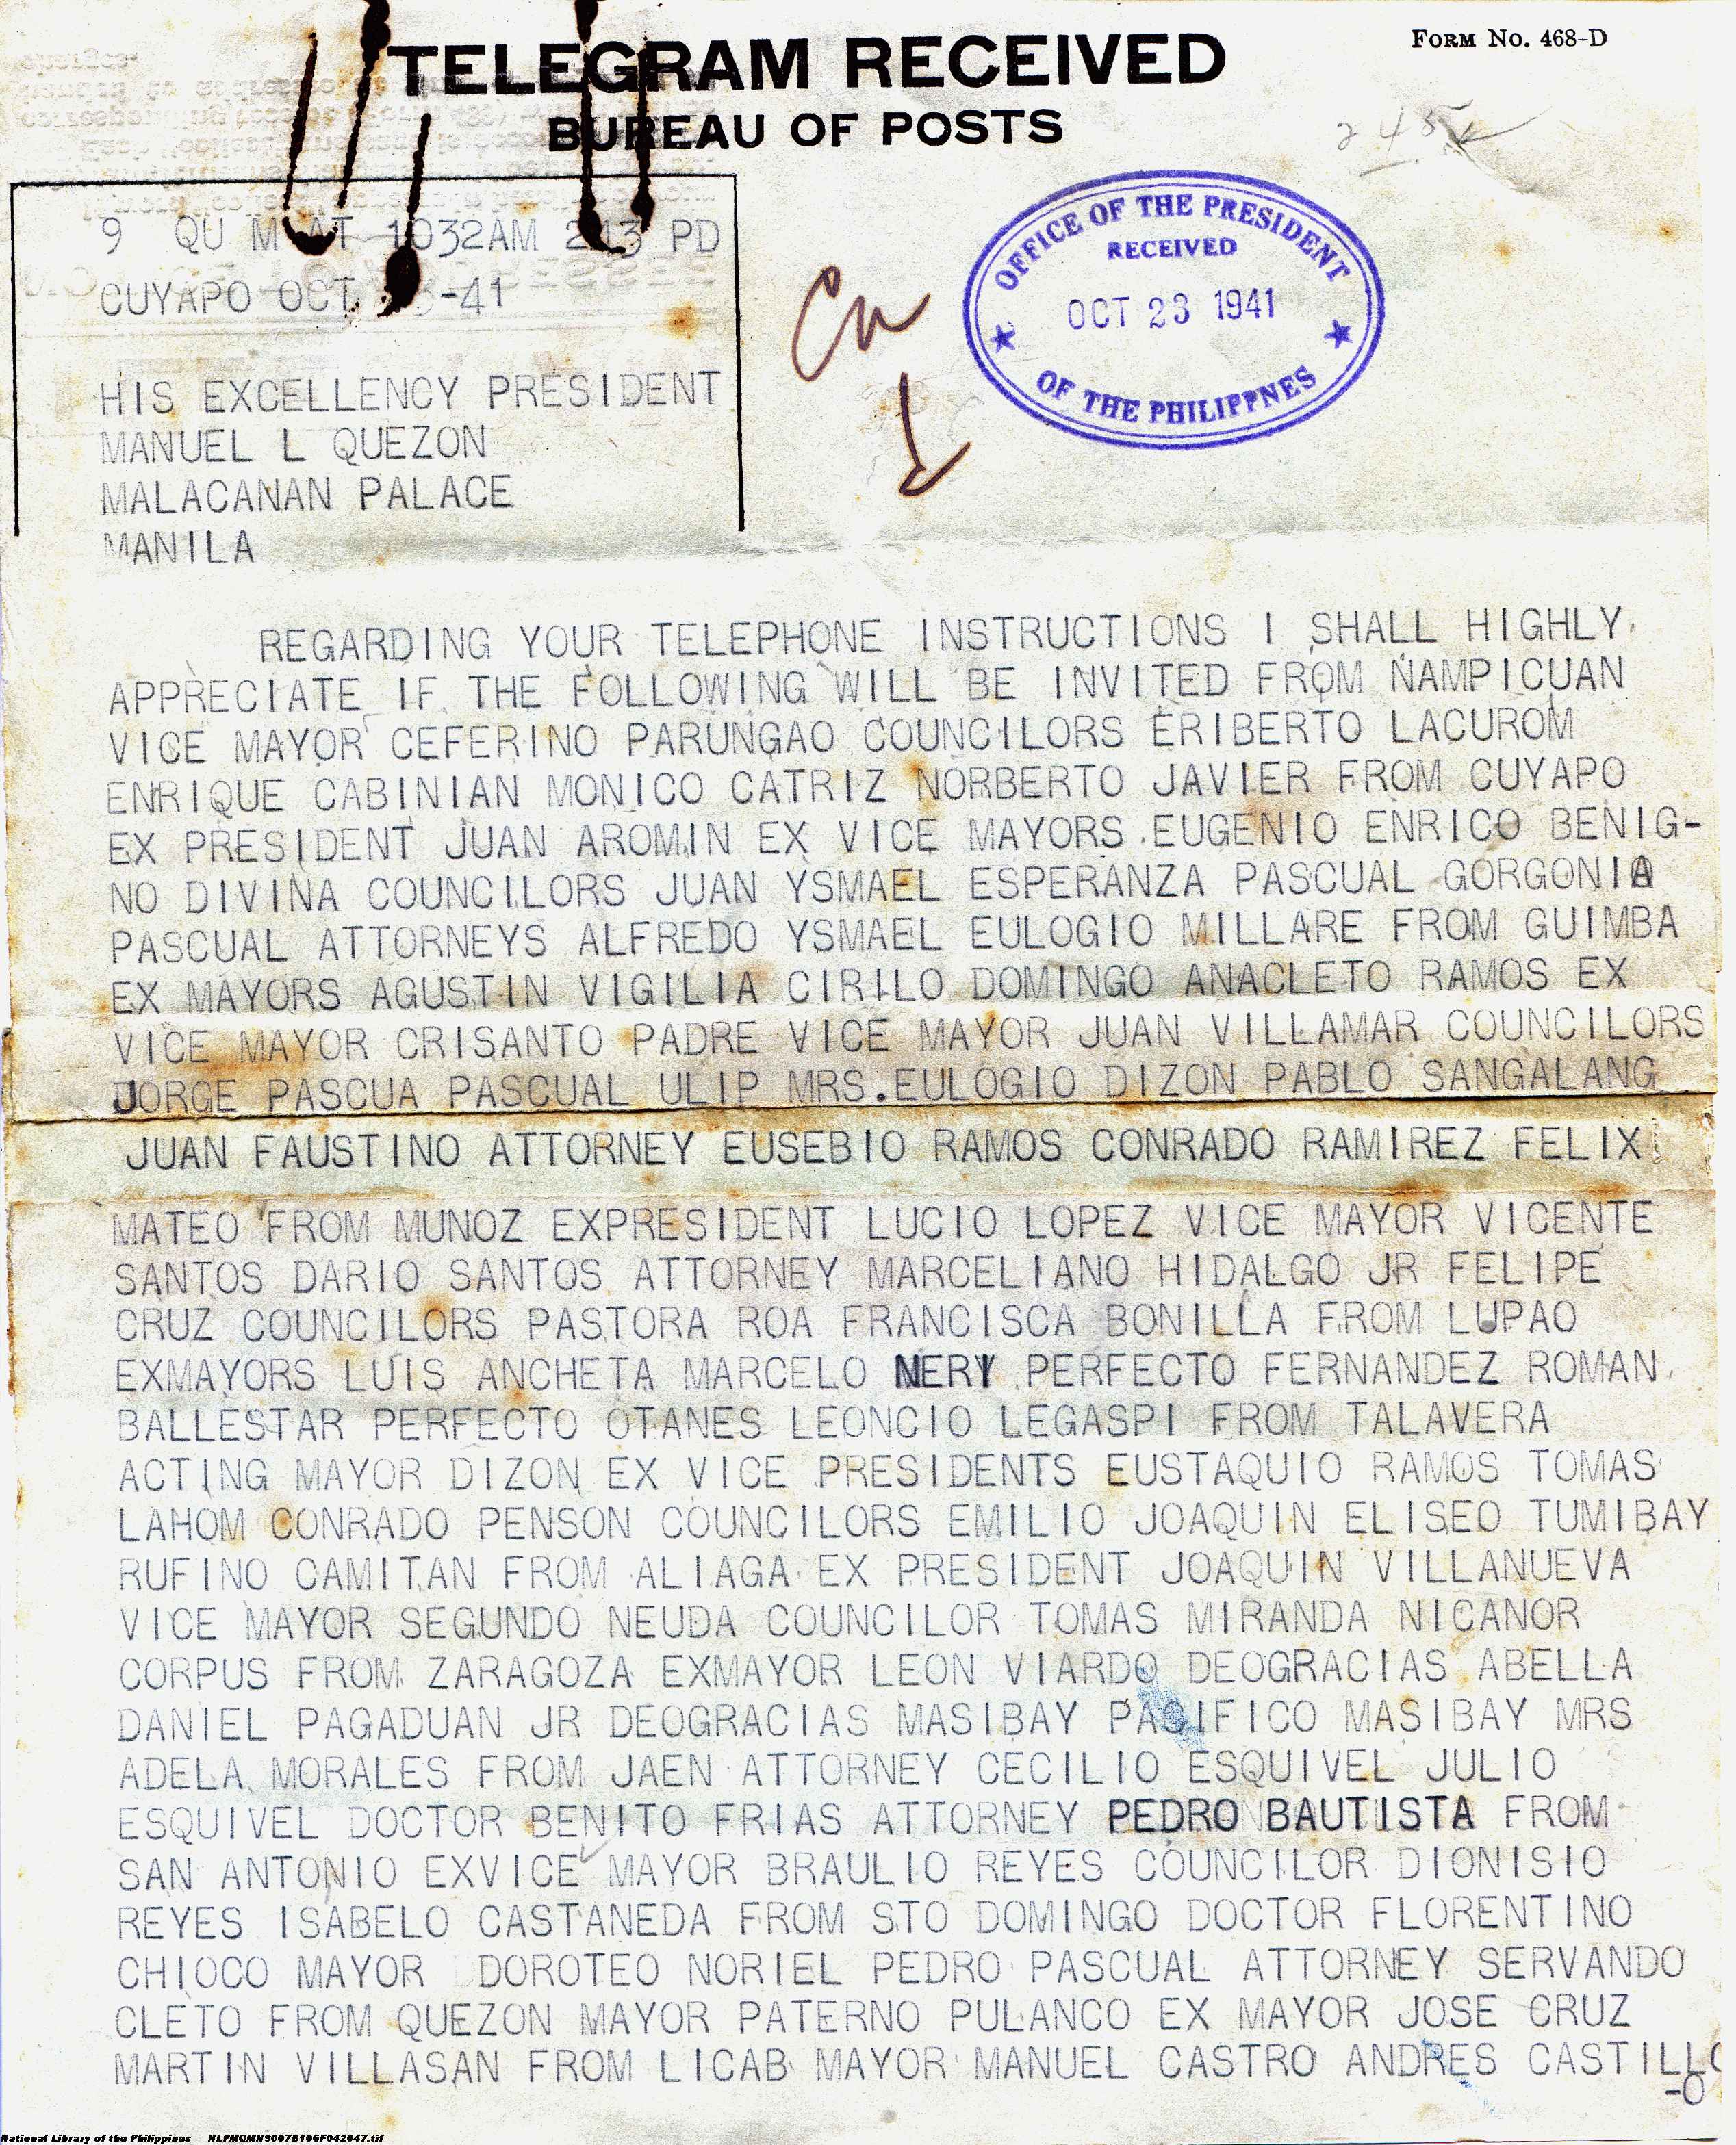 FORM NO. 468-D
TELEGRAM RECEIVED
BUREAU OF POSTS
9 QU M AT 1032AM 243 PD
CUYAPO OCT -41
OFFICE OF THE PRESIDENT
RECEIVED
OCT 23 1941
OF THE PHILIPPNES
HIS EXCELLENCY PRESIDENT
MANUEL L QUEZON
MALACANAN PALACE
MANILA
REGARDING YOUR TELEPHONE INSTRUCTIONS I SHALL HIGHLY
APPRECIATE IF THE FOLLOWING WILL BE INVITED FROM NAMPICUAN
VICE MAYOR CEFERINO PARUNGAO COUNCILORS ERIBERTO LACUROM
ENRIQUE CABINIAN MONICO CATRIZ NORBERTO JAVIER FROM CUYAPO
EX PRESIDENT JUAN AROMIN EX VICE MAYORS EUGENIO ENRICO BENIG-
NO DIVINA COUNCILORS JUAN YSMAEL ESPERANZA PASCUAL GORGONIA
PASCUAL ATTORNEYS ALFREDO YSMAEL EULOGIO MILLARE FROM GUIMBA
EX MAYORS AGUSTIN VIGILIA CIRILO DOMINGO ANACLETO RAMOS EX
VICE MAYOR CRISANTO PADRE VICE MAYOR JUAN VILLAMAR COUNCILORS
JORGE PASCUA PASCUAL ULIP MRS.EULOGIO DIZON PABLO SANGALANG
JUAN FAUSTINO ATTORNEY EUSEBIO RAMOS CONRADO RAMIREZ FELIX
MATEO FROM MUNOZ EXPRESIDENT LUCIO LOPEZ VICE MAYOR VICENTE
SANTOS DARIO SANTOS ATTORNEY MARCELIANO HIDALGO JR FELIPE
CRUZ COUNCILORS PASTORA ROA FRANCISCA BONILLA FROM LUPAO
EXMAYORS LUIS ANCHETA MARCELO NERY PERFECTO FERNANDEZ ROMAN
BALLESTAR PERFECTO OTANES LEONCIO LEGASPI FROM TALAVERA
ACTING MAYOR DIZON EX VICE PRESIDENTS EUSTAQUIO RAMOS TOMAS
LAHOM CONRADO PENSON COUNCILORS EMILIO JOAQUIN ELISEO TUMIBAY
RUFINO CAMITAN FROM ALIAGA EX PRESIDENT JOAQUIN VILLANUEVA
VICE MAYOR SEGUNDO NEUDA COUNCILOR TOMAS MIRANDA NICANOR
CORPUS FROM ZARAGOZA EXMAYOR LEON VIARDO DEOGRACIAS ABELLA
DANIEL PAGADUAN JR DEOGRACIAS MASIBAY PACIFICO MASIBAY MRS
ADELA MORALES FROM JAEN ATTORNEY CECILIO ESQUIVEL JULIO
ESQUIVEL DOCTOR BENITO FRIAS ATTORNEY PEDRO BAUTISTA FROM
SAN ANTONIO EXVICE MAYOR BRAULIO REYES COUNCILOR DIONISIO
REYES ISABELO CASTANEDA FROM STO DOMINGO DOCTOR FLORENTINO
CHIOCO MAYOR DOROTEO NORIEL PEDRO PASCUAL ATTORNEY SERVANDO
CLETO FROM QUEZON MAYOR PATERNO PULANCO EX MAYOR JOSE CRUZ
MARTIN VILLASAN FROM LICAB MAYOR MANUEL CASTRO ANDRES CASTILLO
-0
National Library of the Philippines NLPMQMNS007B106F042047.tif